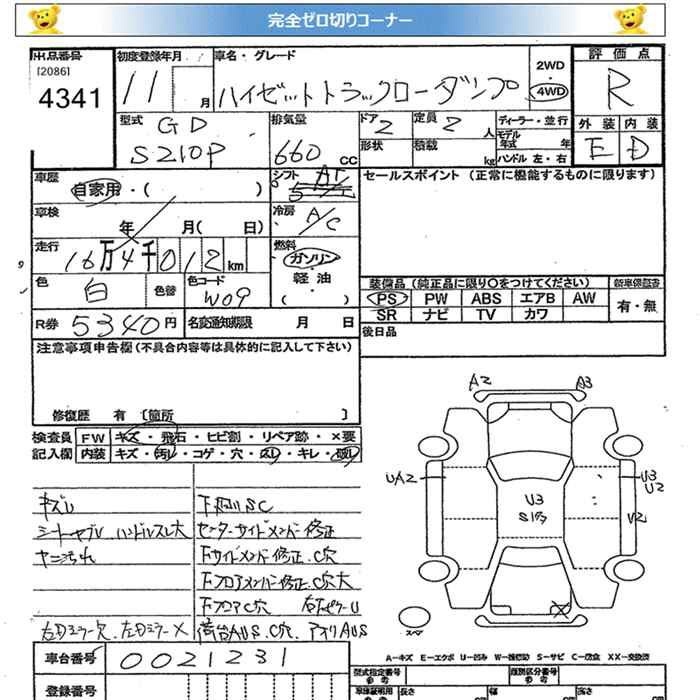 完全ゼロ切りコーナー
出品番号 初度登録年月 車名・グレード 2WD 評価点
[2086] 4341 11 月 ハイゼットトラックローダンプ 4WD R
型式 GD S210P 排気量 660 CC ドア 2 定員 2 人 ディーラー・並行 外装 内装
形状 積載 kg モデル年式 年 E D
ハンドル 左・右
車歴 自家用・( ) シフト AT セールスポイント (正常に機能するものに限ります)
車検 年 月( 日) 冷房 A/C
走行 16万4千012km 燃料 ガソリン・軽油・( )
色 白 色替 色コード W09 装備品(純正品に限り○をつけてください) 新車保証書
PS PW ABS エアB AW 有・無
SR ナビ TV カワ
R券 5340円 名変通知期限 月 日 後日品
注意事項申告欄(不具合内容等は具体的に記入して下さい)
修復歴 有 [箇所 ]
検査員 FW キズ・飛石・ヒビ割・リペア跡・×要
記入欄 内装 キズ・汚レ・コゲ・穴・スレ・キレ・破レ
A2 A3
UA2 U3 U3
U2
V2
キズU 下廻りSC
シートヤブレ ハンドルスレ大 センターサイドメンバー修正
ヤニ汚れ 下サイドメンバー修正、C穴
下フロアメンバー修正、C穴大
下フロアC穴
左右ミラー欠、左右ミラー× 荷台AUS、C穴、アオリAUS
スペア
A−キズ E−エクボ U−凹み W−補修跡 S−サビ C−腐食 XX−交換済
車台番号 0021231 型式指定番号 参考 類別区分番号 参考
登録番号 車庫証明用 参考 長さ 幅 高さ